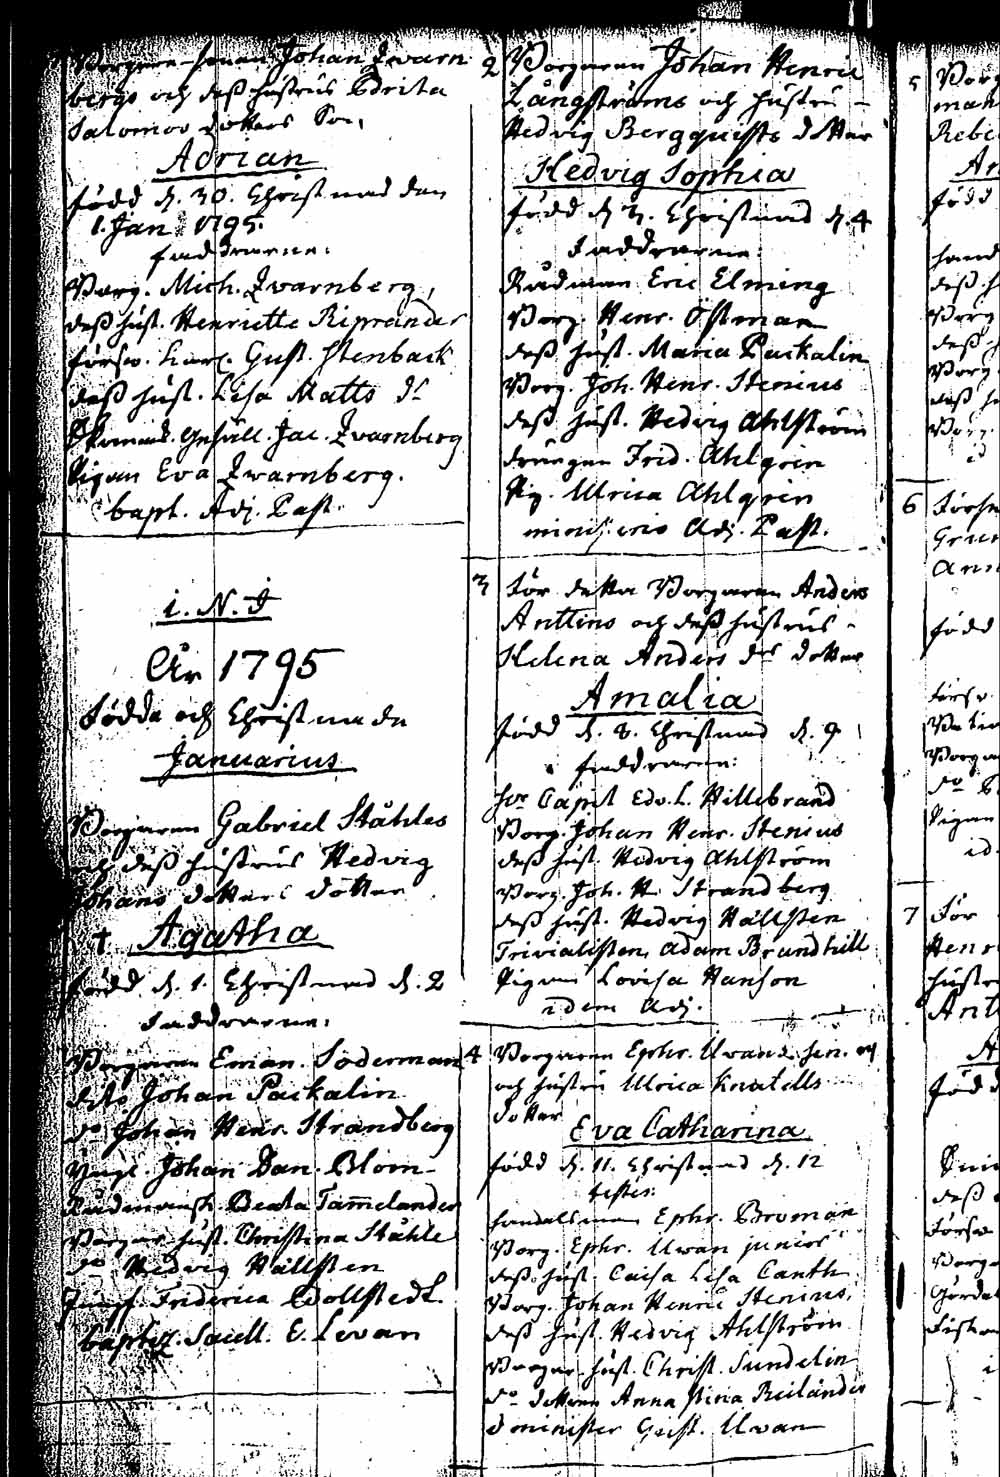 Borgare-sonen Johan Qvarn
bergs och deß hustrus Edrita
Salomos dotters Son,
Adrian
född d. 30. Christnad den
1. Jan. 1795.
faddrarne:
Borg. Mich. Qvarnberg,
deß hust. Henriette Riprander
försv. karl. Gust. Stenback
deß hust. Lisa Matts dr
Gesäll. Jac. Qvarnberg
Pigan Eva Qvarnberg.
bapt. Adj. Past.
i. N. J
År 1795
Födda och Christnade
Januarius
Borgaren Gabriel Ståhles
och deß hustrus Hedvig
Johans dotters dotter
† Agatha
född d. 1. Christnad d. 2
Faddrarne:
Borgaren Eman. Söderman
dito Johan Packalin
do Johan Henr. Strandberg
Johan Dan. Blom
Rådmansh. Beata Tam̅elander
Borgar hust. Christina Ståhle
do Hedvig Hällsten
Jungf. Friderica Dollstedt
baptiz. Sacell. E. Levan
2 Borgaren Johan Henric
Långströms och hustru
Hedvig Bergquists dotter
Hedvig Sophia
född d 3. Christnad d. 4
Faddrarne:
Rådman Eric Elming
Borg. Henr. Östman
deß hust. Maria Packalin
Borg. Joh. Henr. Stenius
deß hust. Hedvig Ahlström
drängen Frid. Ahlgrin
Pig. Ulrica Ahlgrin
Adj. Past.
3 För detta Borgaren Anders
Anttins och deß hustrus
Helena Anders drs dotter
Amalia
född d. 8. Christnad d. 9
faddrarne:
hr Capit Edv. L. Hillebrand
Borg. Johan Henr. Stenius
deß hust. Hedvig Ahlström
Borg. Joh. H. Strandberg
deß hust. Hedvig Hällsten
Trivialisten Adam Brandhill
Pigan Lovisa Hanson
idem Adj.
4 Borgaren Ephr. Uvans sen.
och hustru Ulrica Knatells
dotter
Eva Catharina
född d. 11. Christnad d. 12
testes:
handelsman Ephr. Broman
Borg. Ephr. Uvan junior
deß hust. Caisa Lisa Canth
Borg. Johan Henric Stenius,
deß hust. Hedvig Ahlström
Borgar hust. Christ. Sundelin
do dotteren Anna Stina Reiländer
Gust. Uvan
5 Borg
man
Rebe
An
född
hand
deß h
Borg
deß
Borg
deß h
Borg.
id
6 Försv
Grun
Ann
född
försv
Borga
Pigan
id.
7 För
Henr
hustr
Ant
A
född
deß
försv
Borga
i